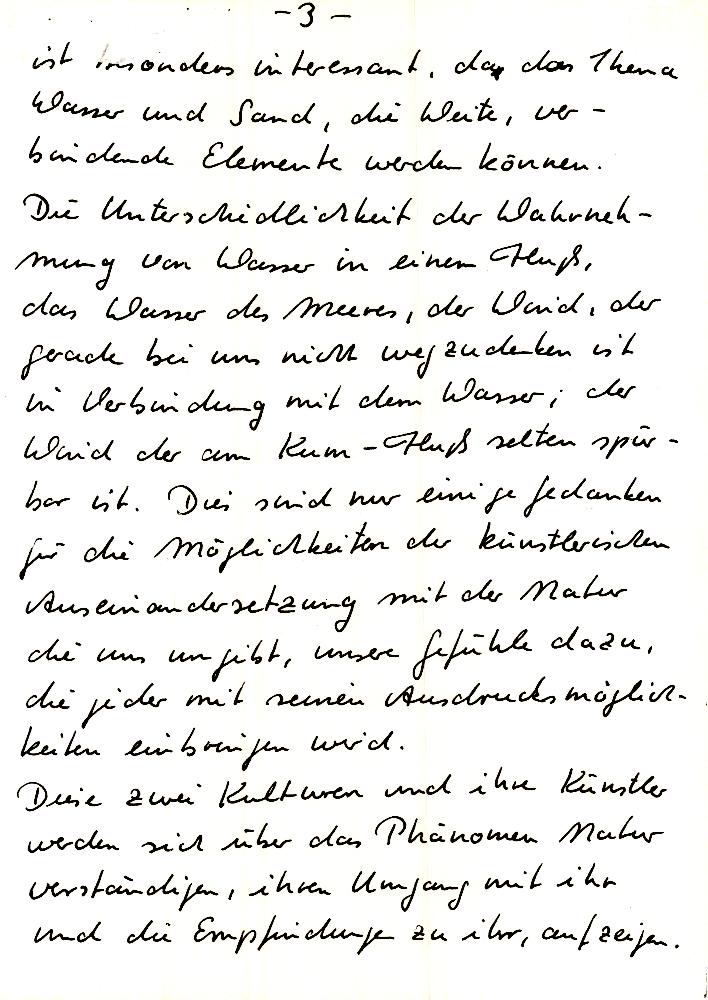 - 3 -
ist besonders interessant, daß das Thema
Wasser und Sand, die Weite, ver-
bindende Elemente werden können.
Die Unterschiedlichkeit der Wahrneh-
mung von Wasser in einem Fluß,
das Wasser des Meeres, der Wind, der
gerade bei uns nicht wegzudenken ist
in Verbindung mit dem Wasser; der
Wind der am Kum-Fluß selten spür-
bar ist. Dies sind nur einige Gedanken
für die Möglichkeiten der künstlerischen
Auseinandersetzung mit der Natur
die uns umgibt, unsere Gefühle dazu,
die jeder mit seinen Ausdrucksmöglich-
keiten einbringen wird.
Diese zwei Kulturen und ihre Künstler
werden sich über das Phänomen Natur
verständigen, ihren Umgang mit ihr
und die Empfindunge zu ihr, aufzeigen.